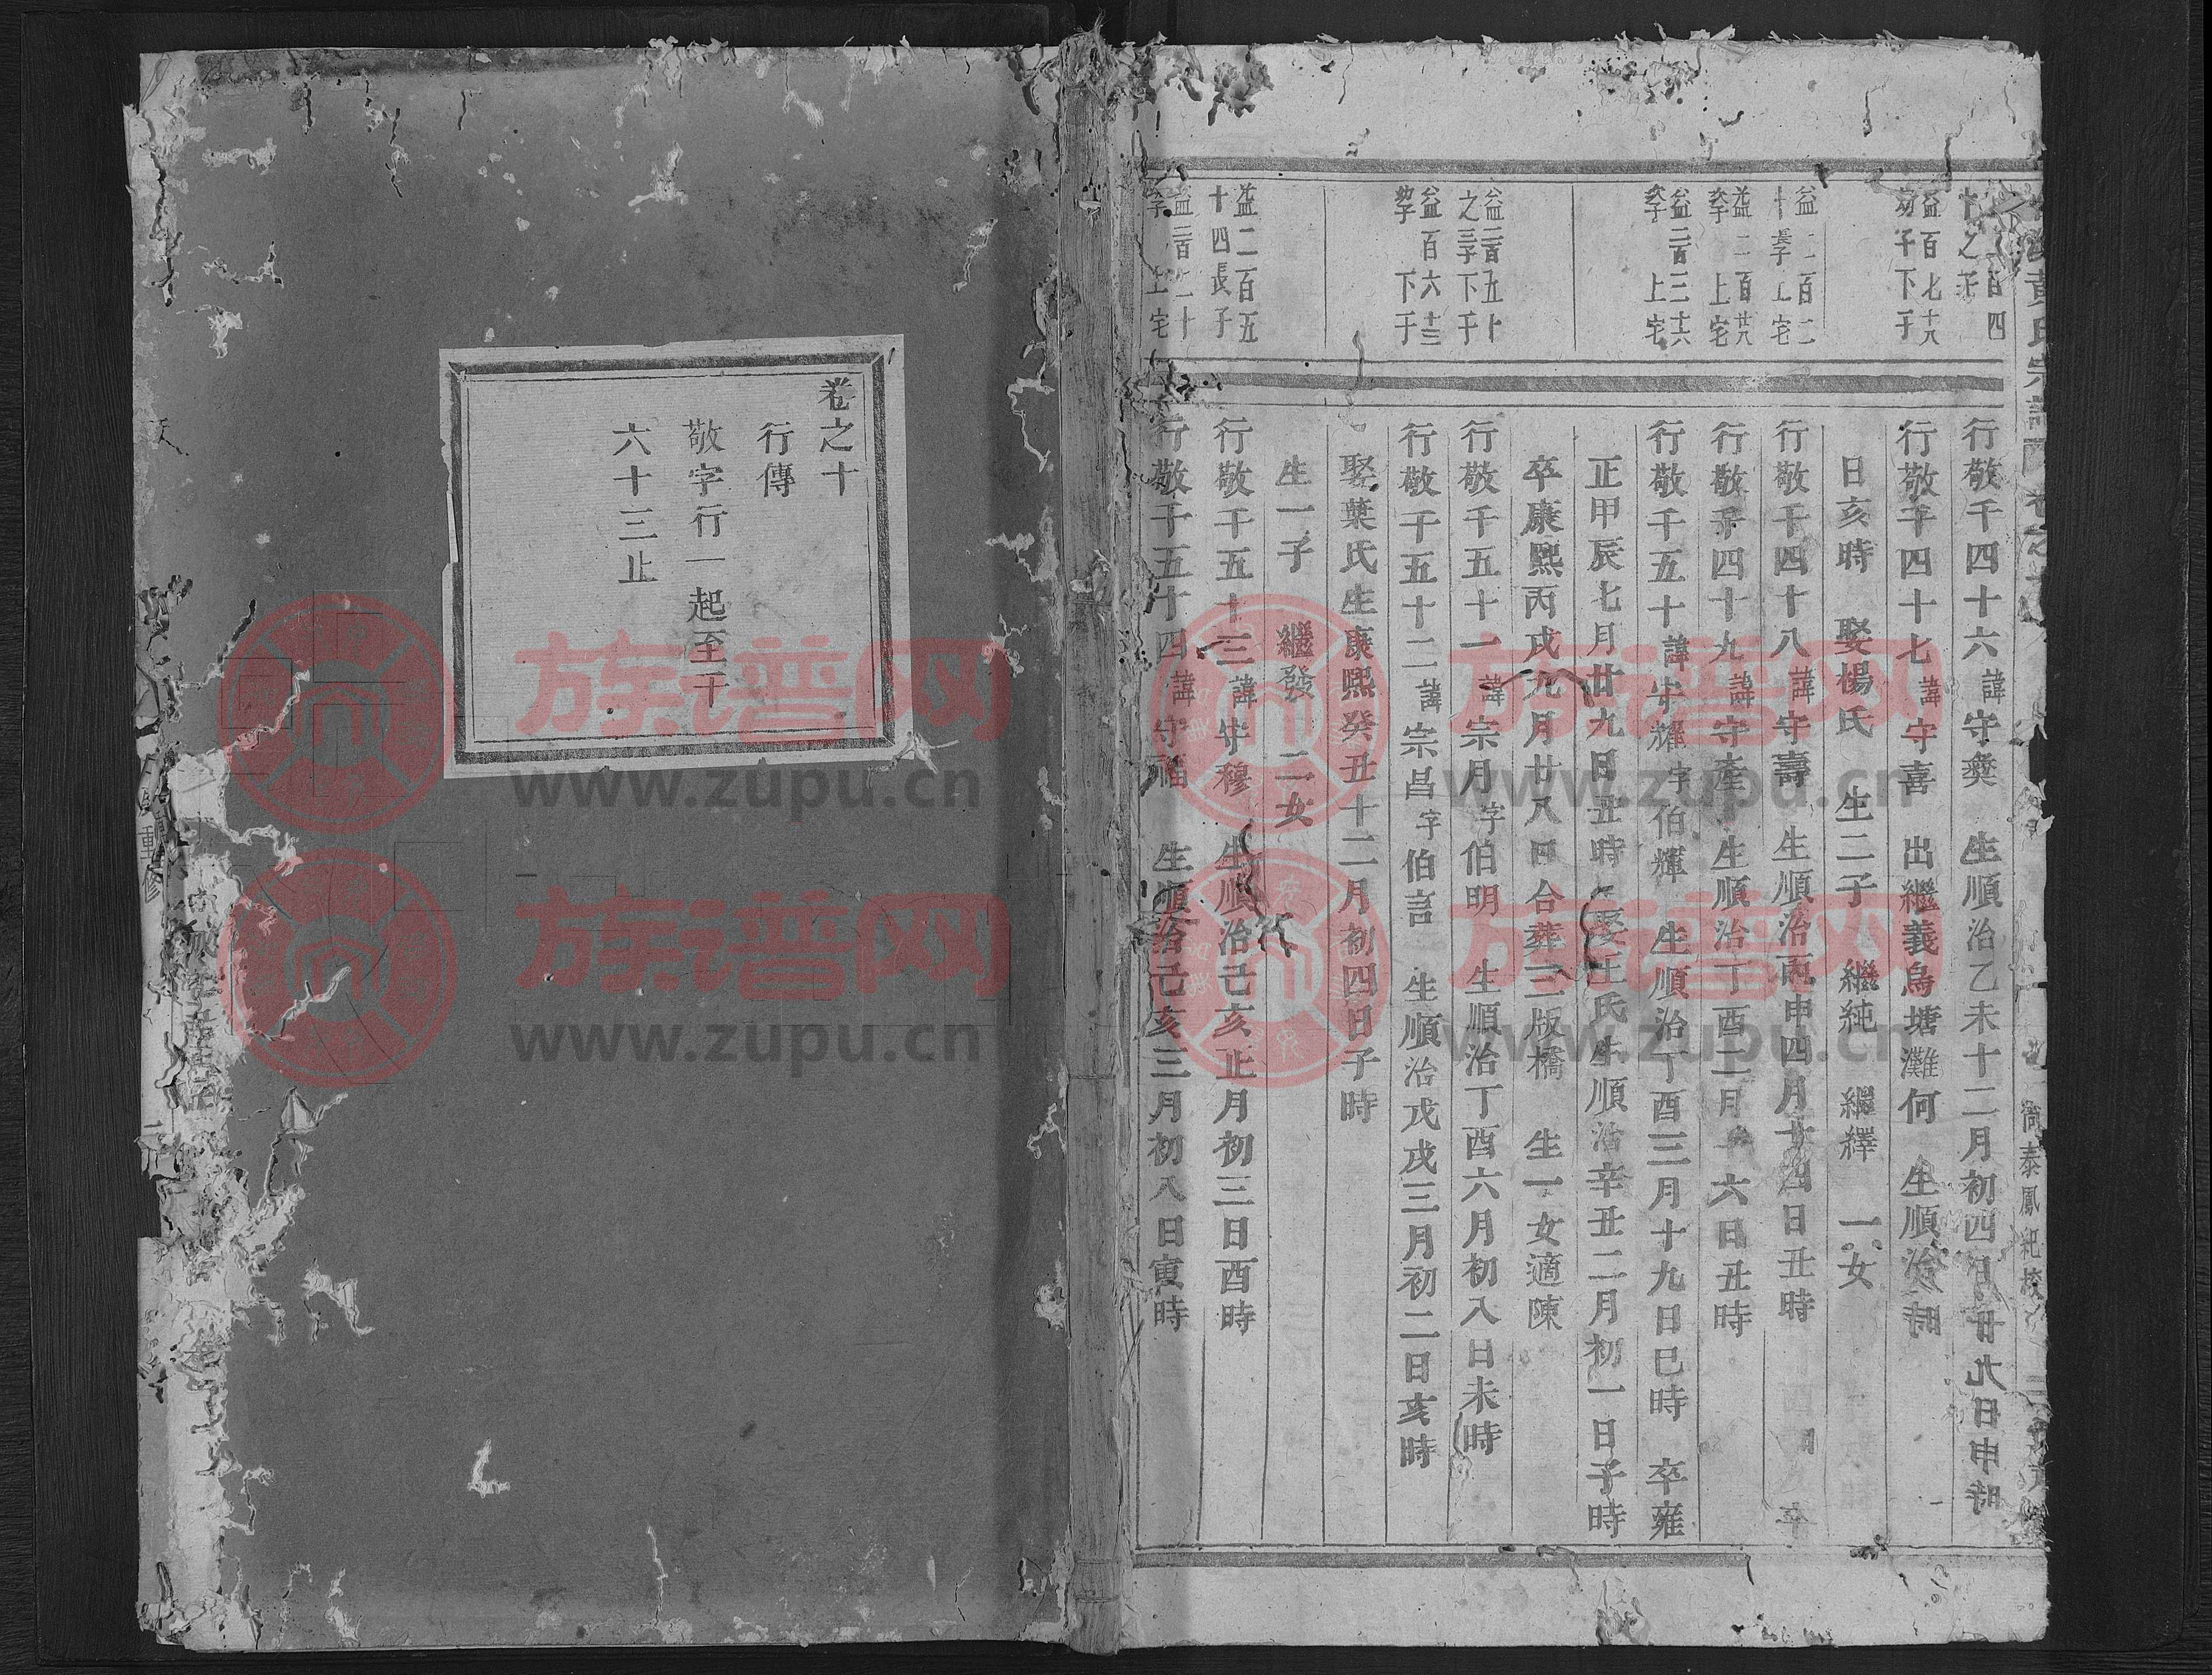 黃氏宗譜
尚泰鳳祀校
行敬千四十六諱守彝 生順治乙未十二月初四日 廿九日申時
益百七十八
幼子下于
行敬千四十七諱守喜 出繼義烏塘灘何 生順治
日亥時 娶楊氏 生二子 繼純 繼繹 一女
益二百二
十季上宅
行敬千四十八諱守壽 生順治丙申四月廿四日丑時 卒
益二百廿八
季上宅
行敬千四十九諱守產 生順治丁酉二月十六日丑時
益二百三十六
季上宅
行敬千五十諱守耀字伯輝 生順治丁酉三月十九日巳時 卒雍
正甲辰七月廿九日丑時 娶王氏生順治辛丑二月初一日子時
卒康熙丙戌九月廿八日合葬三版橋 生一女適陳
益二百五十
之三子下于
行敬千五十一諱宗月字伯明 生順治丁酉六月初八日未時
益百六十三
幼子下于
行敬千五十二諱宗昌字伯言 生順治戊戌三月初二日亥時
娶葉氏生康熙癸丑十二月初四日子時
生一子 繼發 二女
益二百五
十四長子
行敬千五十三諱守穆 生順治己亥正月初三日酉時
季上宅
行敬千五十四諱守福 生順治己亥三月初八日寅時
卷之十
行傳
敬字行一起至千
六十三止
重修
族谱网
www.zupu.cn
族谱网
www.zupu.cn
族谱网
www.zupu.cn
族谱网
www.zupu.cn